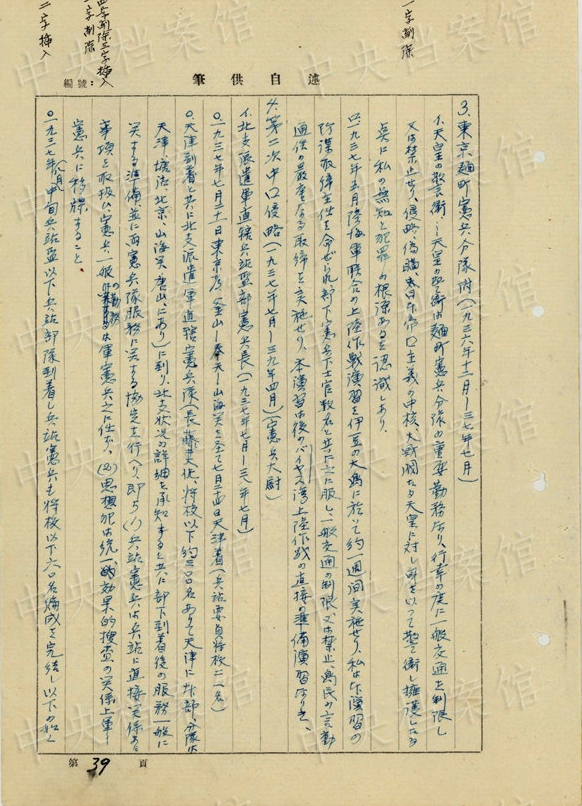 一字削除
四字削除三字挿入
一字削除
二字挿入
述自供筆
編號：
3. 東京麹町憲兵分隊附（一九三六年十二月―三七年七月）
イ、天皇の警衛―天皇の警衛は麹町憲兵分隊の重要勤務なり、行幸の度に一般交通を制限し
又は禁止せり、侵略、偽瞞、日本帝口主義の中核、大戦閥たる天皇に対し身を以って警衛し擁護したる
点に私の無知と犯罪の根源あるを認識しあり、
ロ、一九三七年五月陸海軍聯合の上陸作戦演習を伊豆の大島に於いて約一週間実施せり、私は本演習の
防諜取締主任を命ぜられ部下憲兵下士官数名と共に之に服し、一般交通の制限又は禁止、島民の言動
通信の厳重なる取締を実施せり、本演習は後のバイヤス湾上陸作戦の直接の準備演習なりき、
4. 第二次中口侵略（一九三七年七月―三九年四月）（憲兵大尉）
イ、北支派遣軍直轄兵站監部憲兵長（一九三七年七月―三八年七月）
〇、一九三七年七月二十一日東京発、釜山―奉天―山海関を至て七月二十四日天津着（兵站要員将校二一名）
〇、天津到着と共に北支派遣軍直轄憲兵隊（長 藤 大佐、将校以下約三口名ありて天津に本部、分隊は
天津、塘沽、北京、山海関、唐山にあり）に到り、北支状況の詳細を承知すると共に部下到着後の服務一般に
関する準備、並に両憲兵隊服務に関する協定を行へり、即ち(1)兵站憲兵は兵站に直接関係ある
事項を取扱ひ憲兵一般の勤務は軍憲兵之に任ず、(2)思想犯は統一的効果的捜査の関係上軍
憲兵に移牒すること、
〇、一九三七年八月中旬兵站監以下兵站部隊到着し兵站憲兵も将校以下六口名編成を完結し以下の如く
第 39 頁
中央档案馆